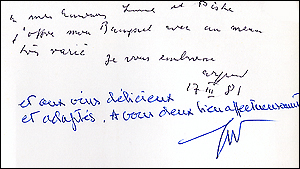 a mes et
j'offre mon Banquet avec un menu
très varié
Je vous embrasse
17 III 81
et aux vins délicieux
et adaptés. A vous deux bien affectueusement